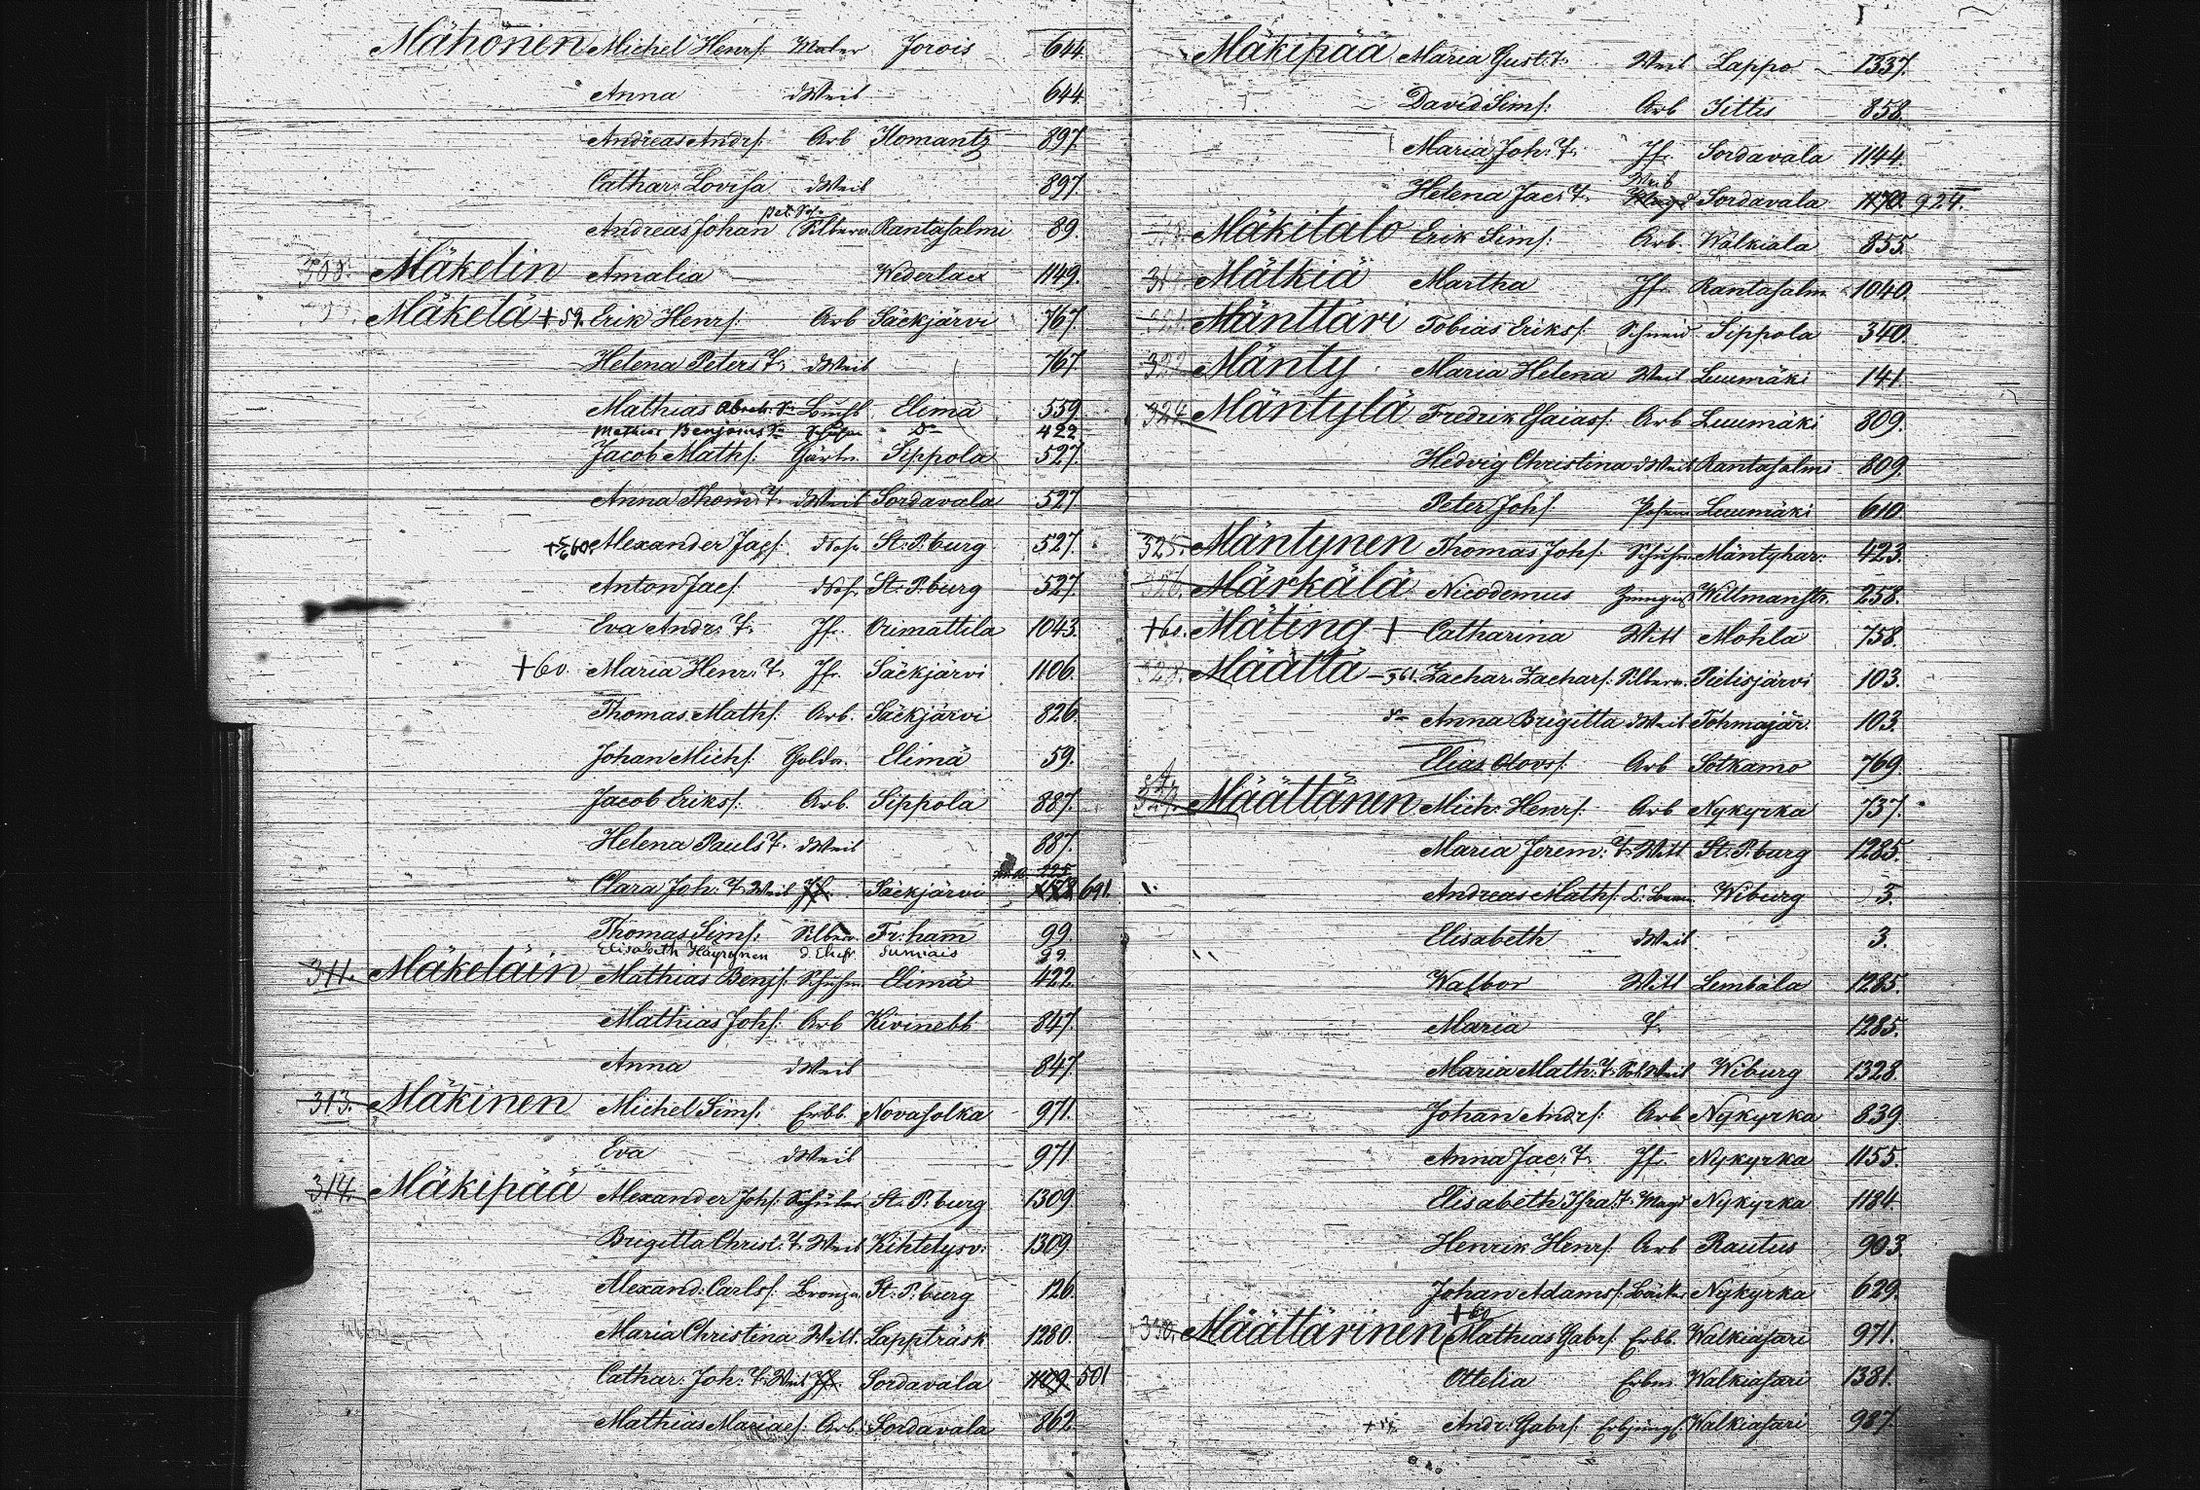 Mähönen Michel Henrs: Maler Jorois 644.
Anna d Weib 644.
Andreas Andrs: Arb Ilomantz 897.
Cathar: Lovisa d Weib 897.
Andreas Johan Pet: Sn Silberar. Rantasalmi 89.
Mäkelin Amalia Wederlax 1149.
Mäkelä +59. Erik Henrs: Arb Säckjärvi 767
Helena Peters T. d Weib 767
Mathias Abrah: Sn Elimä 559
Mathias Benjamins Sn Do 422
Jacob Maths: Gärtn. Sippola 527.
Anna Thom: T. d Weib Sordavala 527
Alexander Jacs: St. P. burg 527.
Anton Jacs St. P. burg 527.
Eva Andr: T. Jfr. Orimattila 1043.
+60. Maria Henr: T. Jfr. Säckjärvi 1106.
Thomas Maths: Arb. Säckjärvi 826.
Johan Michs: Golda. Elimä 59.
Jacob Eriks: Arb. Sippola 887.
Helena Pauls T. d Weib 887.
225
Clara Joh: T. Weib Jfr. Säckjärvi 691.
Thomas Sims: Silber. Fr: ham 99.
Elisabeth Häyrynen d. Ehefr. Sumiais 99.
311. Mäkeläin Mathias Benjs: Schuhm Elimä 422.
Mathias Johs: Arb Kivinebb 847.
Anna d Weib 847
313. Mäkinen Michel Sims: Erbb. Novasolka 971.
Eva d Weib 971
314. Mäkipää Alexander Johs: Schüler St. P: burg 1309.
Brigitta Christ: T. Weib Kihtelysv: 1309
Alexand: Carls: Bronza. St. P: burg 126.
Maria Christina Witt. Lappträsk 1280.
Cathar: Joh: T. Weib Jfr. Sordavala 1109. 501
Mathias Arb. Sordavala 862
Mäkipää Maria Gust: T. Weib Lappo 1337.
David Sims: Arb Jittis 858.
Maria Joh: T. Jfr. Sordavala 1144.
Helena Jac: T. Weib Magd Sordavala 1170. 924.
Mäkitalo Erik Sims: Arb. Walkiala 855.
Mälkiä Martha Jfr. Rantasalm. 1040.
Mänttäri Tobias Eriks: Schneid Sippola 340.
322. Mänty Maria Helena Weib Luumäki 141.
324. Mäntylä Fredrik Esaias: Arb Luumäki 809.
Hedvig Christina d Weib Rantasalmi 809.
Peter Johs: Luumäki 610
325. Mäntynen Thomas Johs: Schuhm Mäntyhar: 423.
326. Märkälä Nicodemus Willmanstr. 258.
+60. Mäting + Catharina Witt Mohla 758.
328. Määttä Zachar. Zachars: Silbera. Pielisjärvi 103.
Do Anna Brigitta d Weib Tohmajär. 103.
Elias Olovs: Arb Sotkamo 769
Määttänen Mich: Henrs: Arb Nykyrka 737.
Maria Jerem: T. Witt St. P: burg 1285.
Andreas Maths: Wiburg 3.
Elisabeth d Weib. 3.
Walbor Witt Lembäla 1285.
Maria T. 1285.
Maria Math: T. Weib Wiburg 1328.
Johan Andrs: Arb Nykyrka 839
Anna Jac: T. Jfr. Nykyrka 1155.
Elisabeth Isra: T. Magd Nykyrka 1184.
Henrik Henrs: Arb Rautus 903.
Johan Adams: Bäcker Nykyrka 629.
330. Määttärinen +60 Mathias Gabrs: Erbb. Walkiasari 971.
Ottelia Erbm Walkiasari 1381.
Andr: Gabrs: Erbjungs: Walkiasari 987.